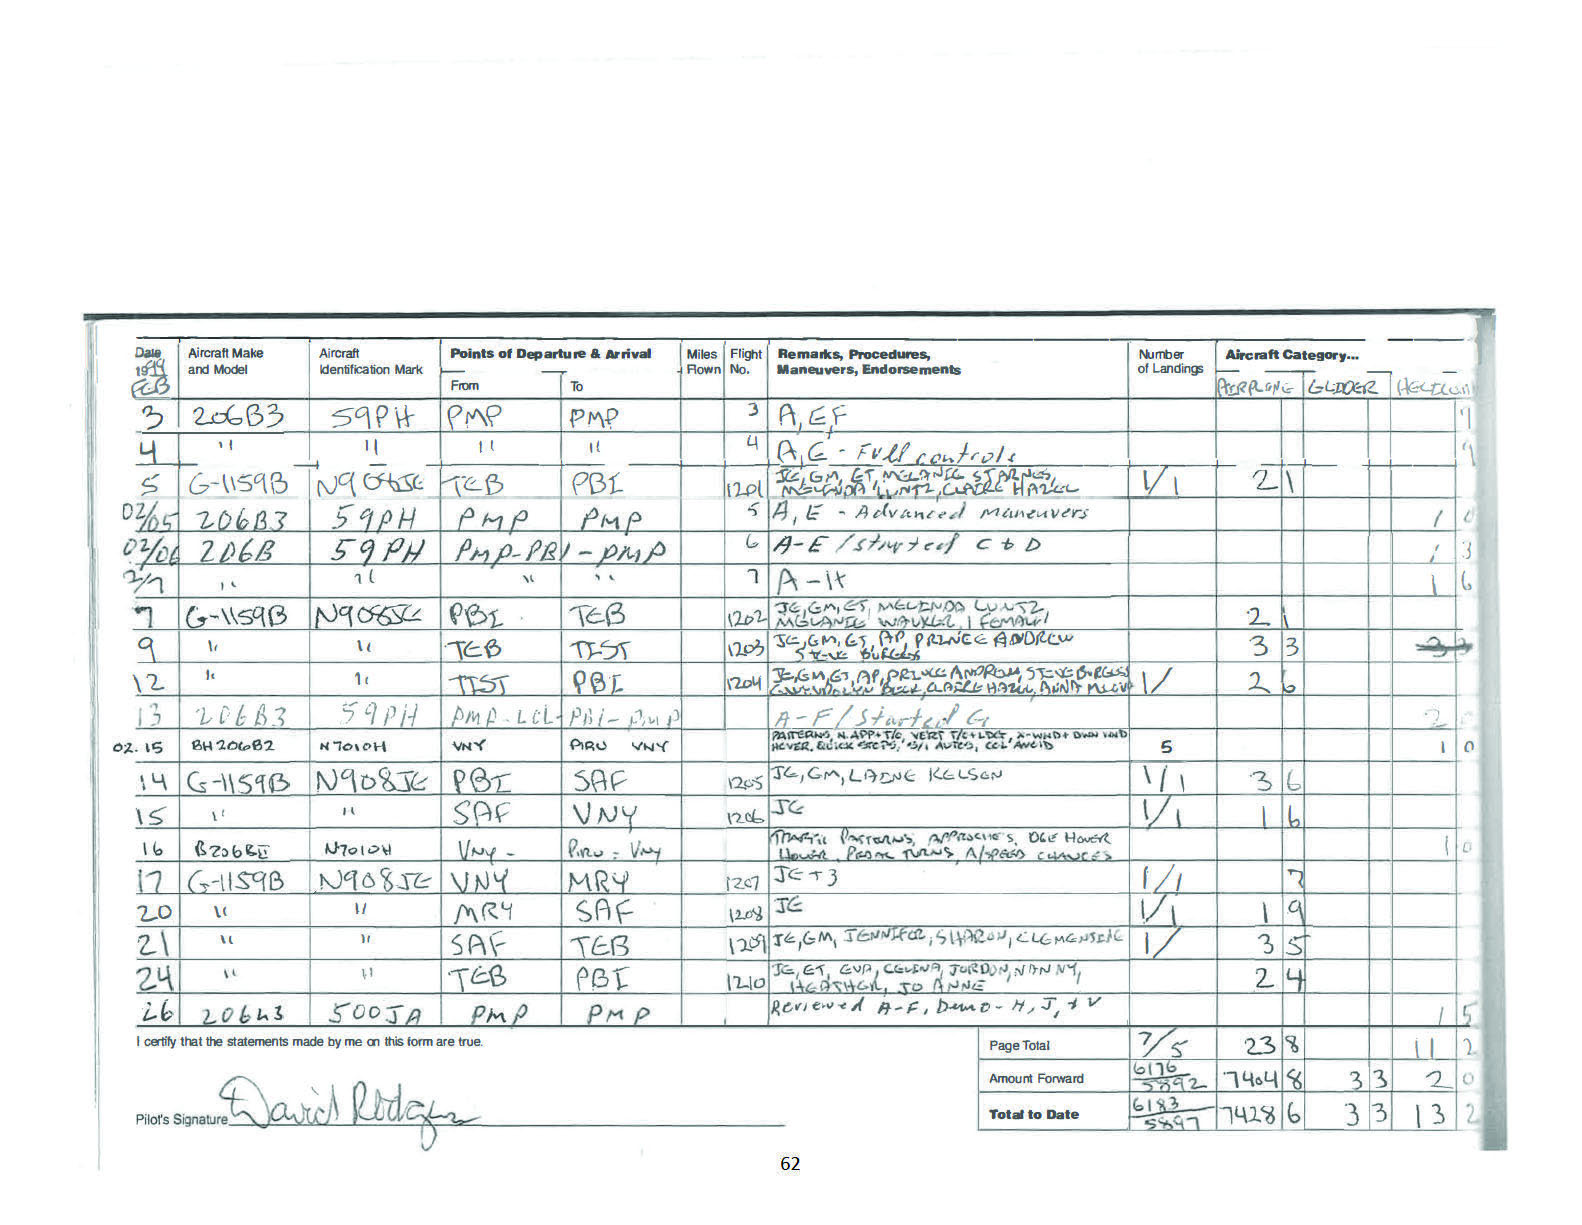 Date Aircraft Make Aircraft Points of Departure & Arrival Miles Flight Remarks, Procedures, Number Aircraft Category...
1999 and Model Identification Mark Flown No. Maneuvers, Endorsements of Landings
FEB From To AIRPLANE GLIDER
3 206B3 59PH PMP PMP 3 A, E, F 7
4 " " " " 4 A, E - Full controls 9
5 G-1159B N908JE TEB PBI 1201 JE, GM, ET, MELANIE STARNES, 1/1 2 1
MELINDA LUNTZ, CLAIRE HAZEL
02/05 206B3 59PH PMP PMP 5 A, E - Advanced Maneuvers 1 0
02/06 206B 59PH PMP-PBI-PMP 6 A-E / started C & D 1 3
2/7 " " " " 7 A-H 1 6
7 G-1159B N908JE PBI TEB 1202 JE, GM, ET, MELINDA LUNTZ, 2 1
MELANIE WALKER, 1 FEMALE
9 " " TEB TIST 1203 JE, GM, ET, AP, PRINCE ANDREW 3 3
STEVE BURGESS
12 " " TIST PBI 1204 JE, GM, ET, AP, PRINCE ANDREW, STEVE BURGESS 1/ 2 6
GWENDOLYN BECK, CLAIRE HAZEL, ANNA
13 206B3 59PH PMP-LCL-PBI-PMP A-F / Started G 2
02.15 BH206B2 N7010H VNY PIRU VNY PATTERNS, N. APP + T/O, VERT T/O + LDG, X-WND + DWN WND 5 1 0
HOVER, QUICK STOPS, AUTOS, COL AVOID
14 G-1159B N908JE PBI SAF 1205 JE, GM, LAINE KELSEN 1/1 3 6
15 " " SAF VNY 1206 JE 1/1 1 6
16 B206BII N7010H VNY - PIRU - VNY TRAFFIC PATTERNS, APPROCHES, OGE HOVER 1 0
HOVER, PEDAL TURNS, A/SPEED CHANGES
17 G-1159B N908JE VNY MRY 1207 JE + 3 1/1 7
20 " " MRY SAF 1208 JE 1/1 1 9
21 " " SAF TEB 1209 JE, GM, JENNIFER, SHARON, CLEMENTINE 1/ 3 5
24 " " TEB PBI 1210 JE, ET, EVA, CELINA, JORDON, NANNY, 2 4
HEATHER, JO ANNE
26 206L3 500JA PMP PMP Reviewed A-F, Demo - H, J, + V 1 5
I certify that the statements made by me on this form are true. Page Total 7/5 23 8 11 2
Amount Forward 6176/5892 7404 8 3 3 2 0
Pilot's Signature David Rodgers Total to Date 6183/5897 7428 6 3 3 13 2
62